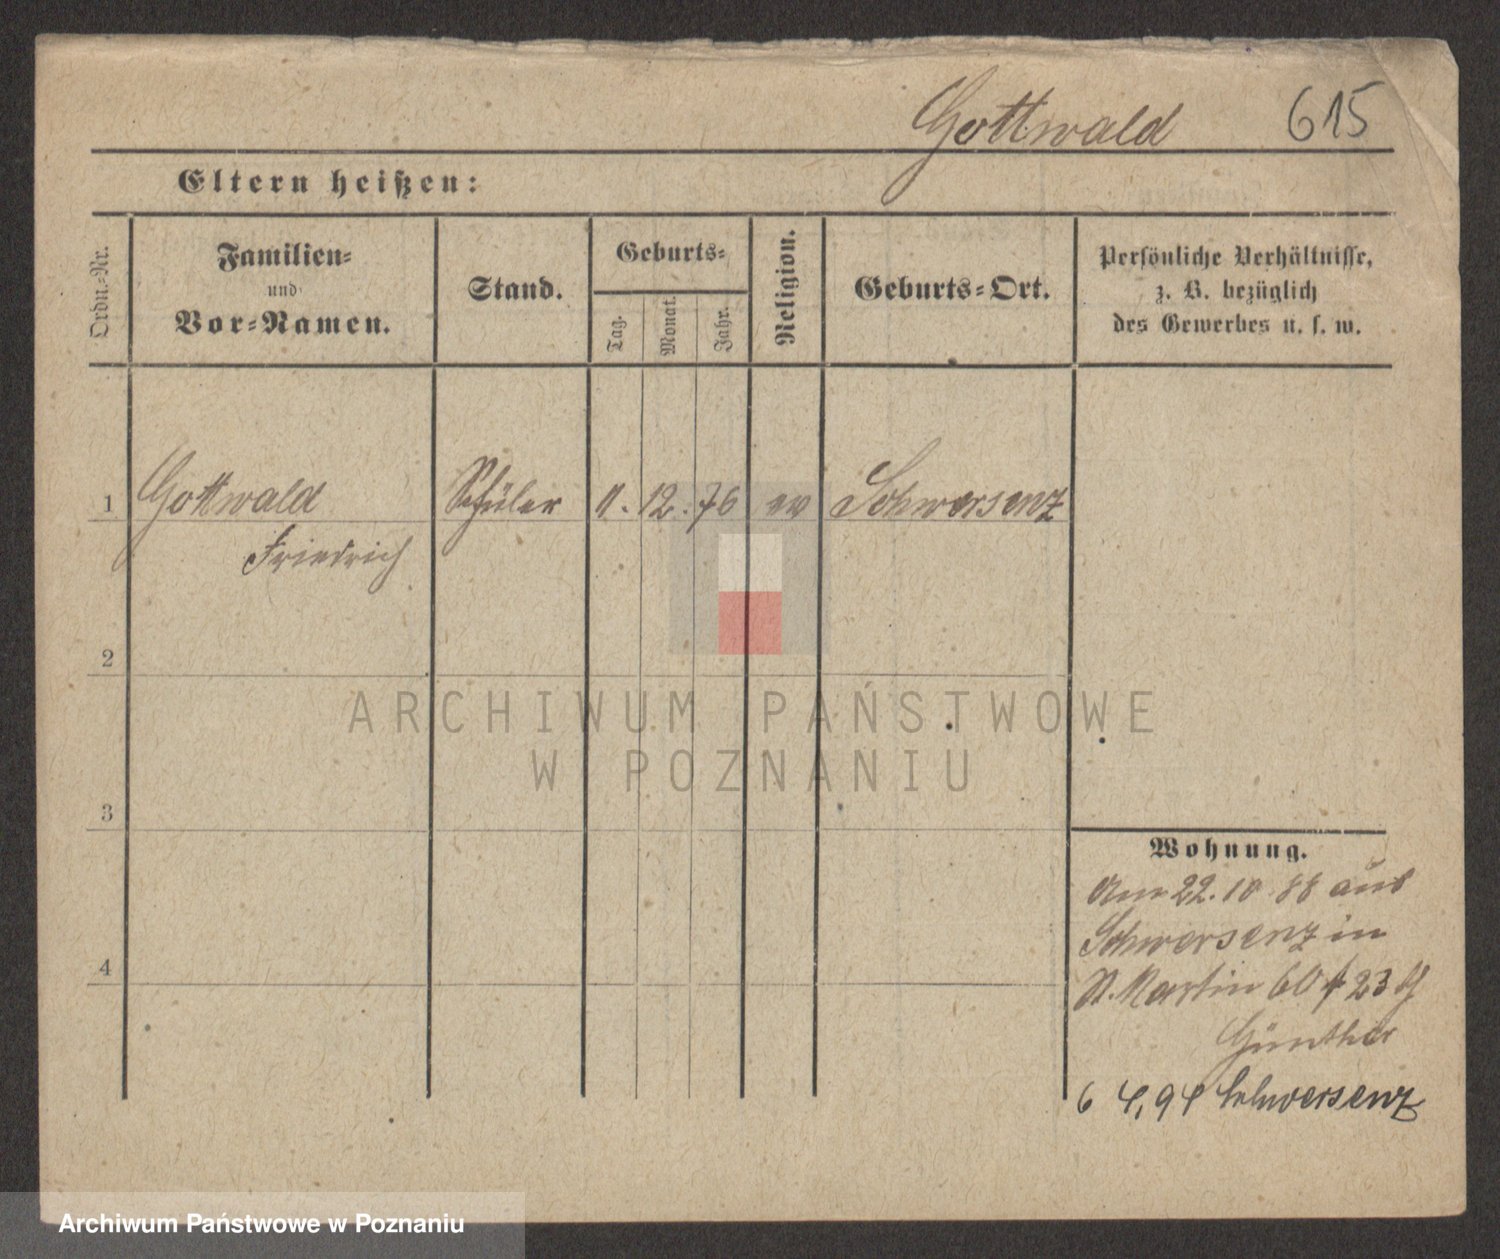 Gottwald 615
Eltern heißen:
Ordn.-Nr.
Familien-
und
Vor-Namen.
Stand.
Geburts-
Tag.
Monat.
Jahr.
Religion.
Geburts-Ort.
Persönliche Verhältnisse,
z. B. bezüglich
des Gewerbes u. s. w.
1 Gottwald Schüler 11. 12. 76 ev Schwersenz
Friedrich
2
3
4
Wohnung.
Am 22. 10. 88 aus
Schwersenz in
St. Martin 60/23 b/
Günther
6 4, 94 Schwersenz
ARCHIWUM PAŃSTWOWE
W POZNANIU
Archiwum Państwowe w Poznaniu